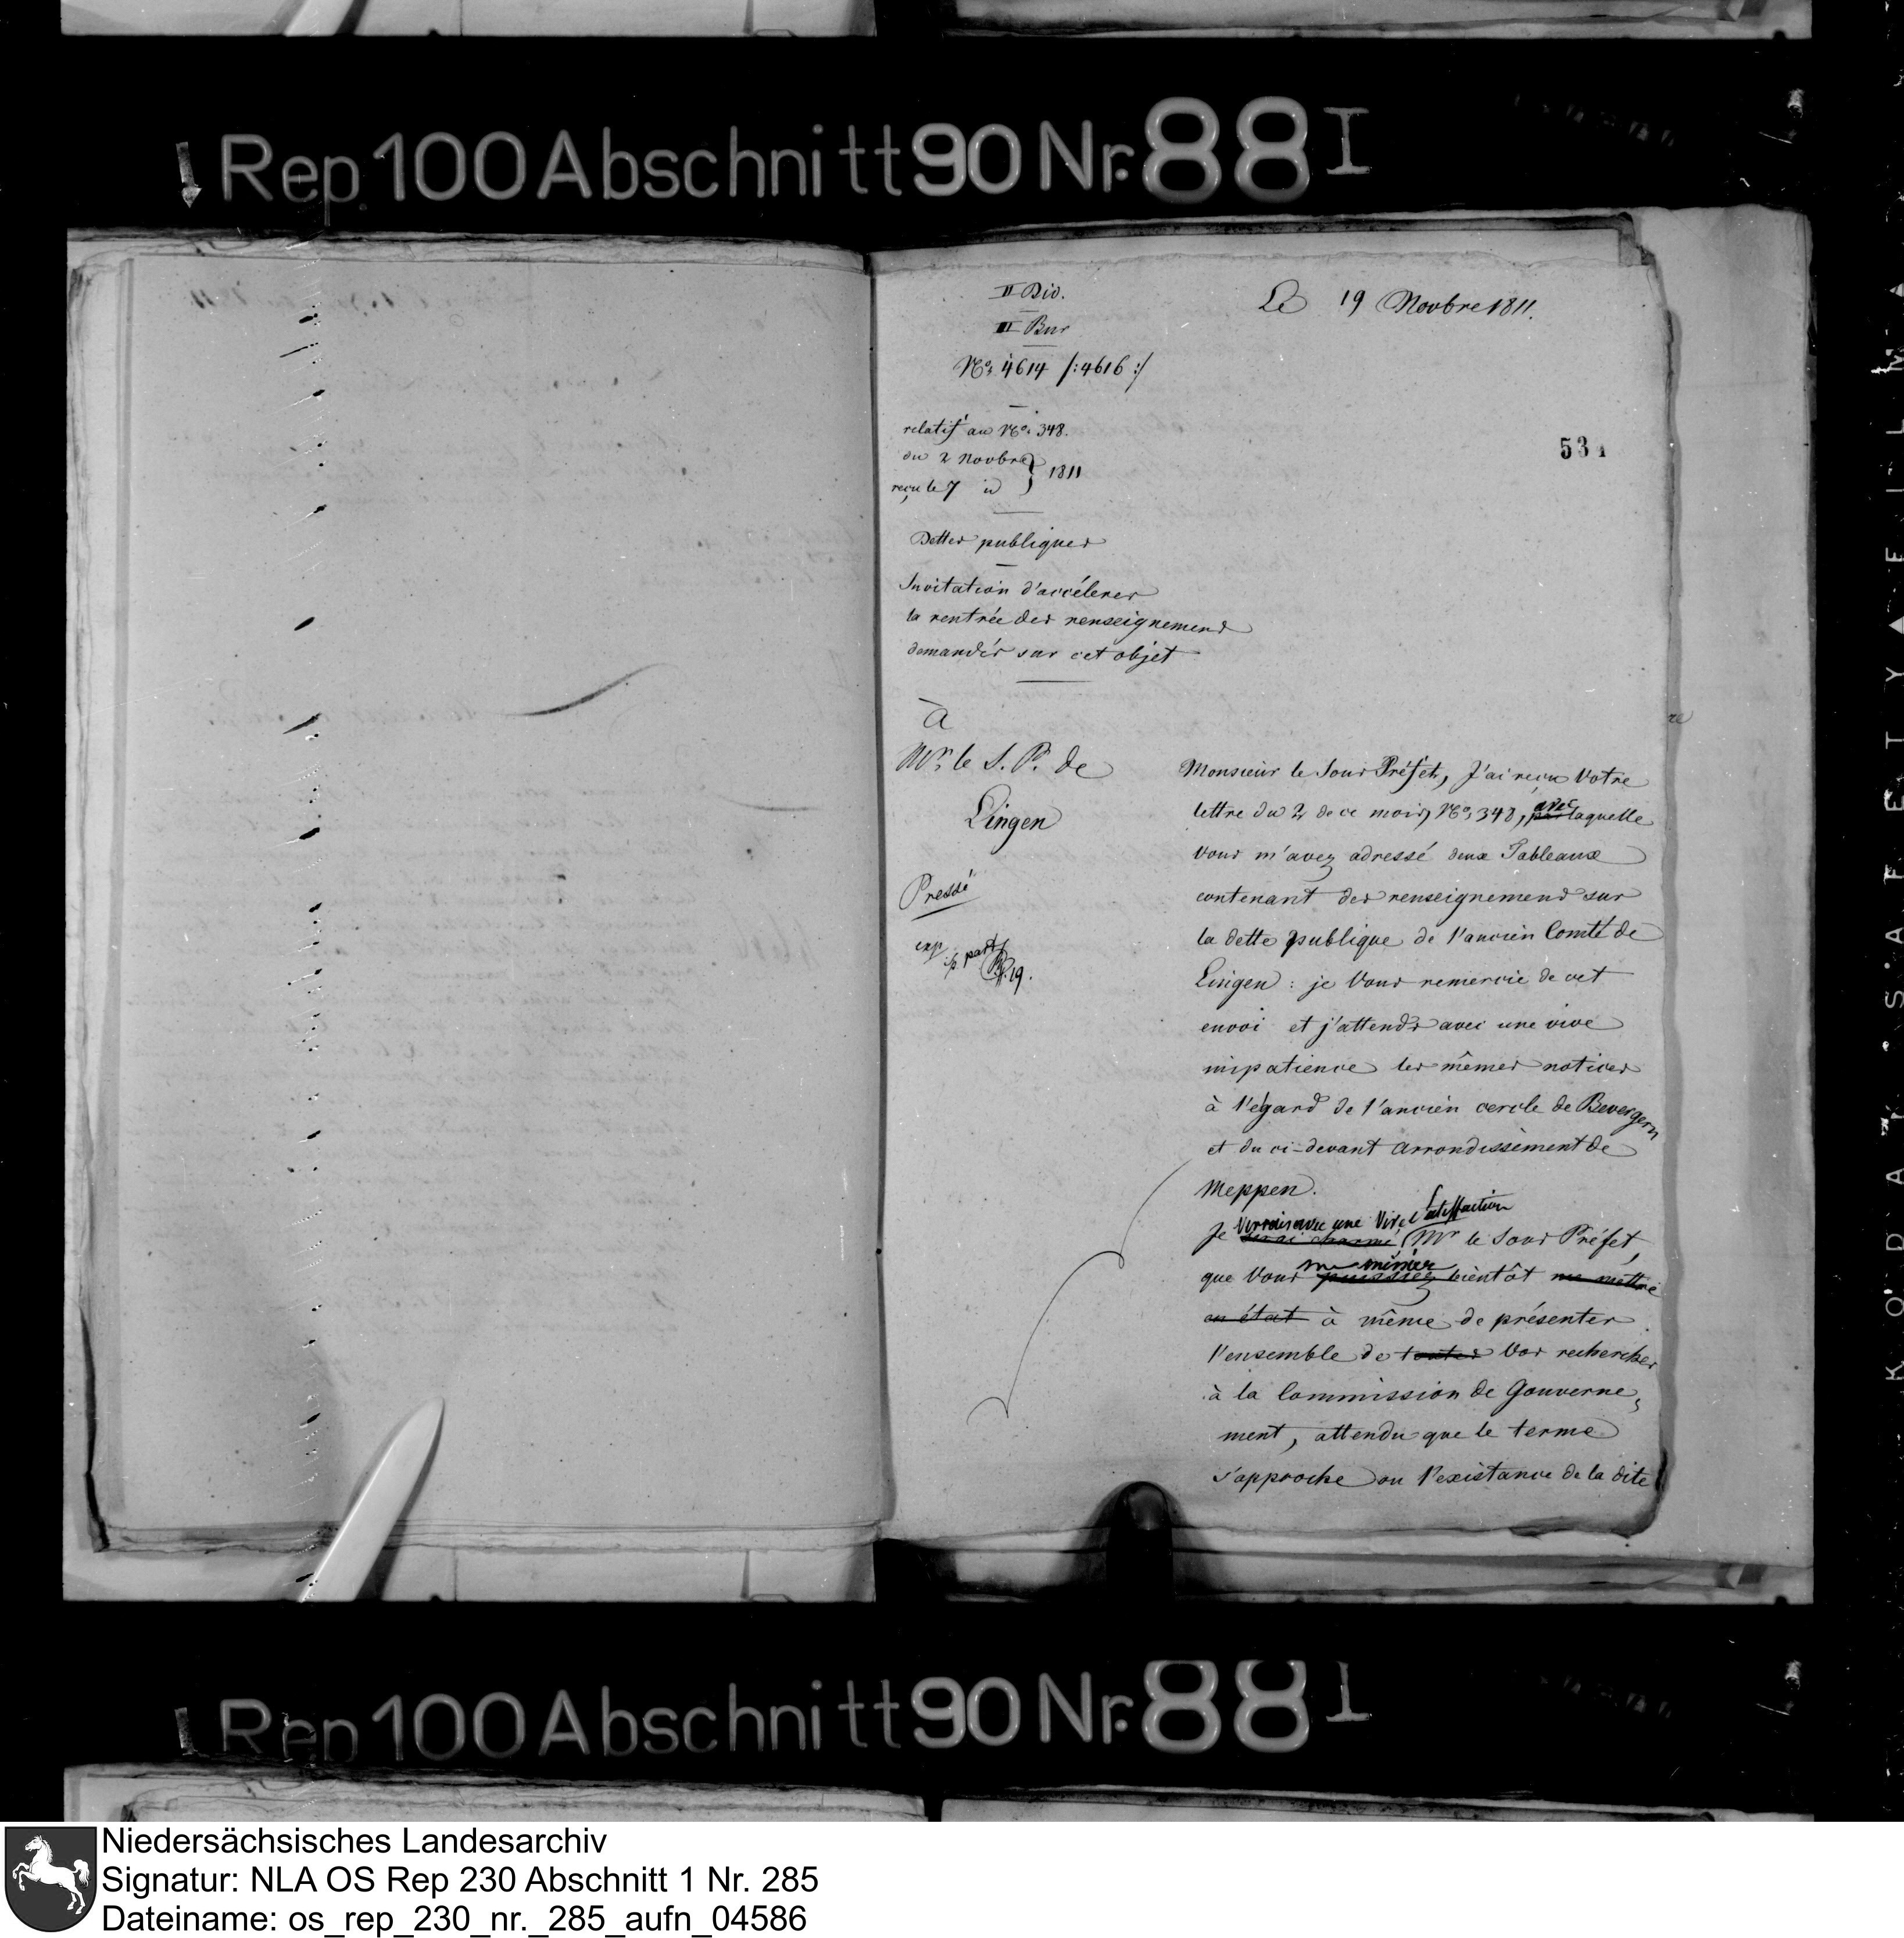 Rep 100 Abschnitt 90 Nr. 88 I
II Div.
III Bur
No. 4614 /:4616:/
relatif au No. 348.
du 2 Novbre } 1811
reçu le 7 id
Dettes publiques
Invitation d'accélerer
la rentrée des renseignemens
demandés sur cet objet
à
Mr. le S. P. de
Lingen
Pressé
exp.
19.
Le 19 Novbre 1811.
531
Monsieur le Sous Préfet, J'ai reçu Votre
lettre du 2 de ce mois, No. 348, par avec laquelle
Vous m'avez adressé deux Tableaux
contenant des renseignemens sur
la dette publique de l'ancien Comté de
Lingen : je Vous remercie de cet
envoi et j'attends avec une vive
impatience les mêmes notices
à l'égard de l'ancien cercle de Bevergern
et du ci-devant arrondissement de
Meppen.
Verrais avec une Vive Satisfaction
Je serai charmé, Mr le Sous Préfet,
me missiez
que Vous puissiez bientôt me mettre
en état à même de présenter
l'ensemble de toutes Vos recherches
à la Commission de Gouverne,
ment, attendu que le terme
s'approche ou l'existance de la dite
Rep 100 Abschnitt 90 Nr. 88 I
KODAK SAFETY FILM
Niedersächsisches Landesarchiv
Signatur: NLA OS Rep 230 Abschnitt 1 Nr. 285
Dateiname: os_rep_230_nr._285_aufn_04586